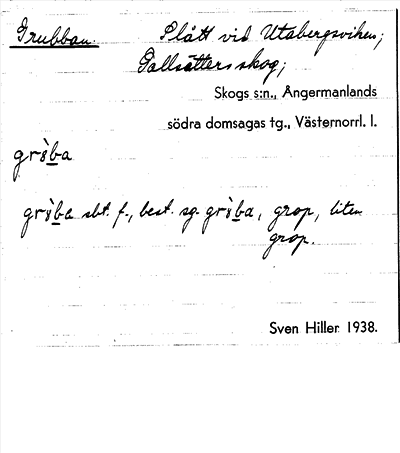 Grubban. Slått vid Utabergsviken;
Gallsätters skog;
Skogs s:n., Ångermanlands
södra domsagas tg., Västernorrl. l.
grò̀ba
grò̀ba sbt. f., best. sg. grò̀ba, grop, liten
grop.
Sven Hiller 1938.